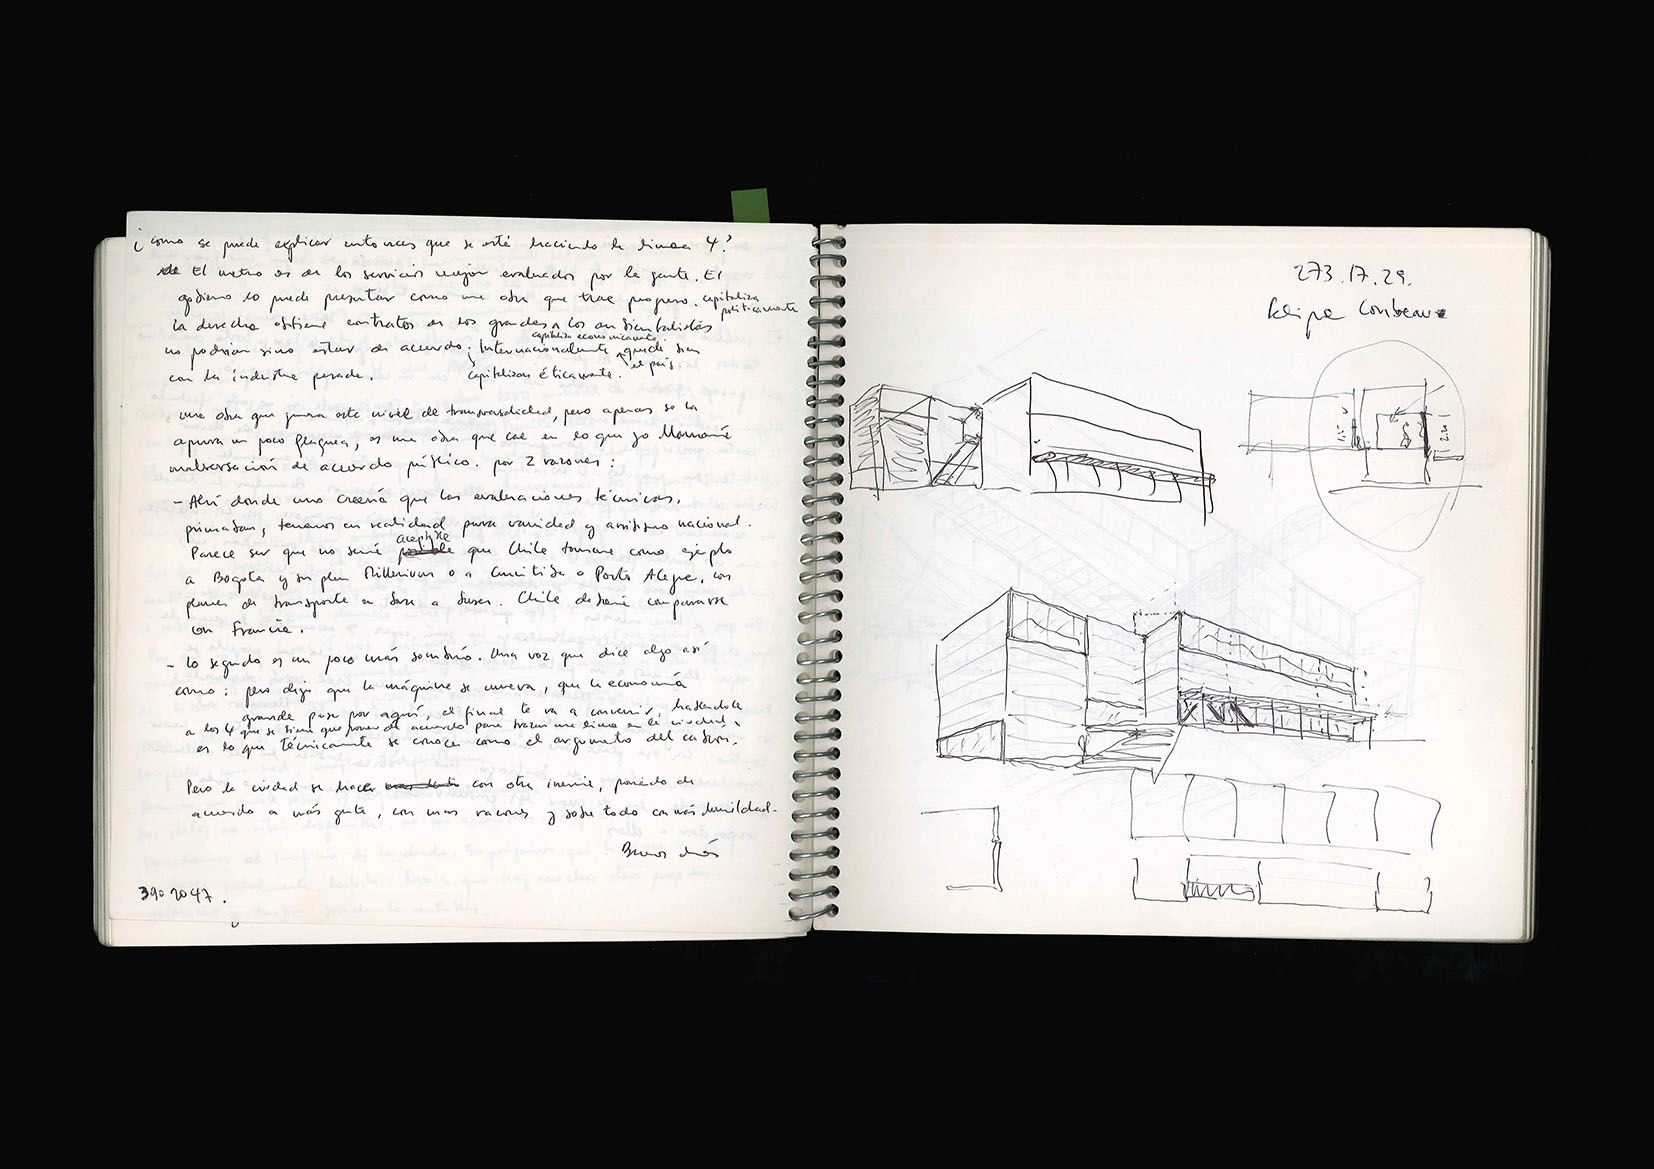 ¿como se puede explicar entonces que se esté haciendo la linea 4?
El metro es de los servicios mejor evaluados por la gente. El
gobierno lo puede presentar como una obra que trae progreso. capitaliza
políticamente
la derecha obtiene contratos en los grandes, los ambientalistas
capitaliza economicamente.
no podrian sino estar de acuerdo; Internacionalmente queda bien
el país.
con la industria pesada. capitalizan éticamente.
una obra que genera este nivel de transversalidad, pero apenas se la
apura un poco flaquea, es una obra que cae en lo que yo llamaré
malversación de acuerdo público. por 2 razones:
- Ahí donde uno creería que las evaluaciones técnicas,
primaban, tenemos en realidad pura vanidad y arribismo nacional.
aceptable
Parece ser que no sería posible que Chile tomara como ejemplo
a Bogota y su plan Millenium o a Curitiba o Porto Alegre, con
planes de transporte en base a buses. Chile debería compararse
con Francia.
- Lo segundo es un poco más sombrío. Una voz que dice algo así
como: pero deja que la máquina se mueva, que la economía
grande pase por aquí, al final te va a convenir, habiendole
a los 4 que se tiene que poner de acuerdo para trazar una linea en la ciudad,
es lo que técnicamente se conoce como el argumento del cabrón.
Pero la ciudad se hace con otra inercia, poniendo de
acuerdo a más gente, con mas razones y sobre todo con más humildad.
Buenos días
390 2047.
273.17.29.
Felipe Combeau